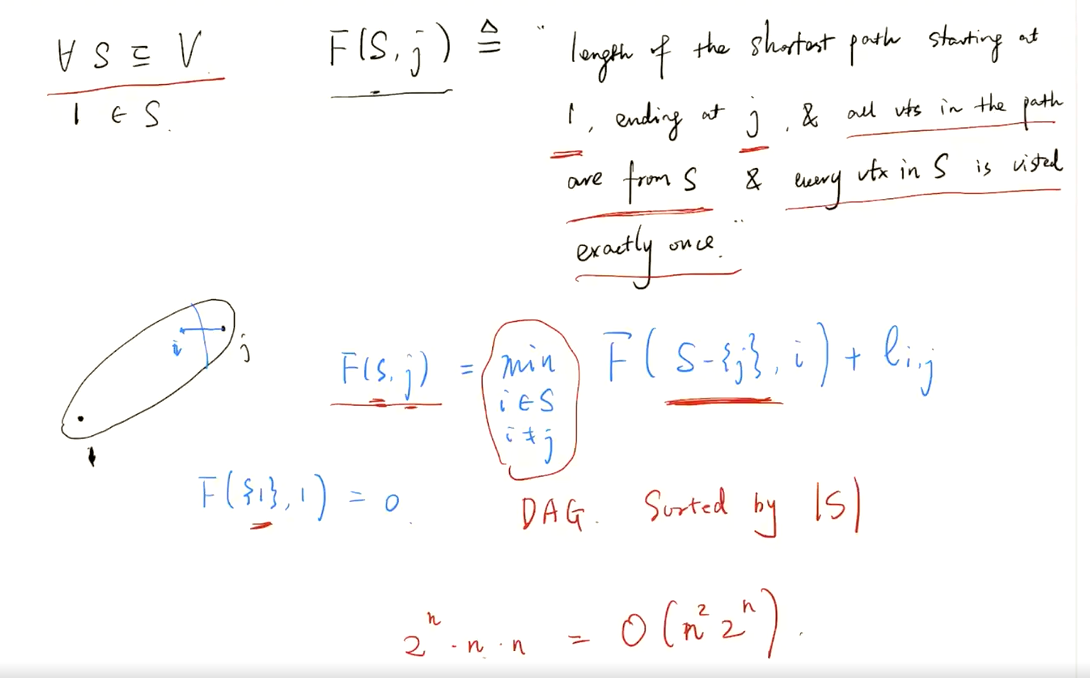 ∀ S ⊆ V
1 ∈ S.
F(S, j) ≜ " length of the shortest path starting at
1, ending at j, & all vts in the path
are from S & every vtx in S is visted
exactly once."
i
j
1
F(S, j) = min F(S-{j}, i) + l_{i,j}
i ∈ S
i ≠ j
F({1}, 1) = 0.
DAG. Sorted by |S|
2^n · n · n = O(n^2 2^n).